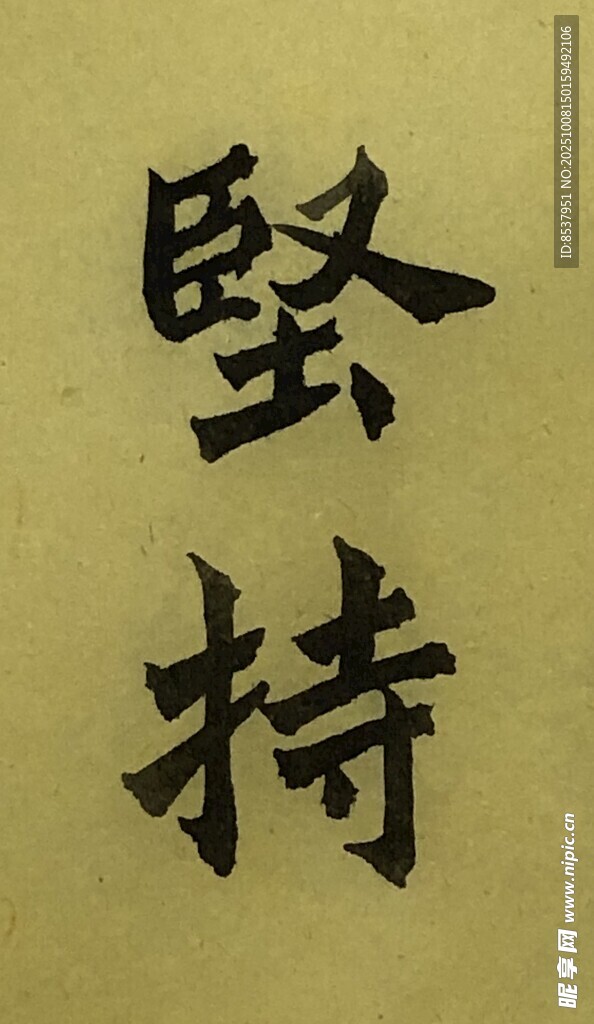 堅持
ID:8537951 NO:20251008150159492106
昵享网 www.nipic.cn